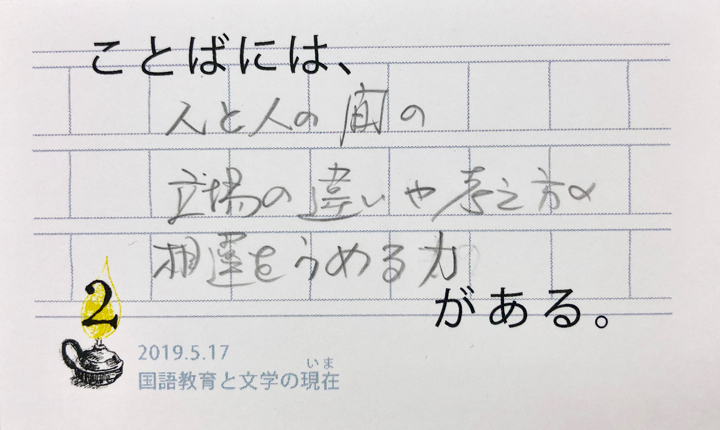 ことばには、
人と人の間の
立場の違いや考え方の
相違をうめる力
がある。
2
2019.5.17
いま
国語教育と文学の現在